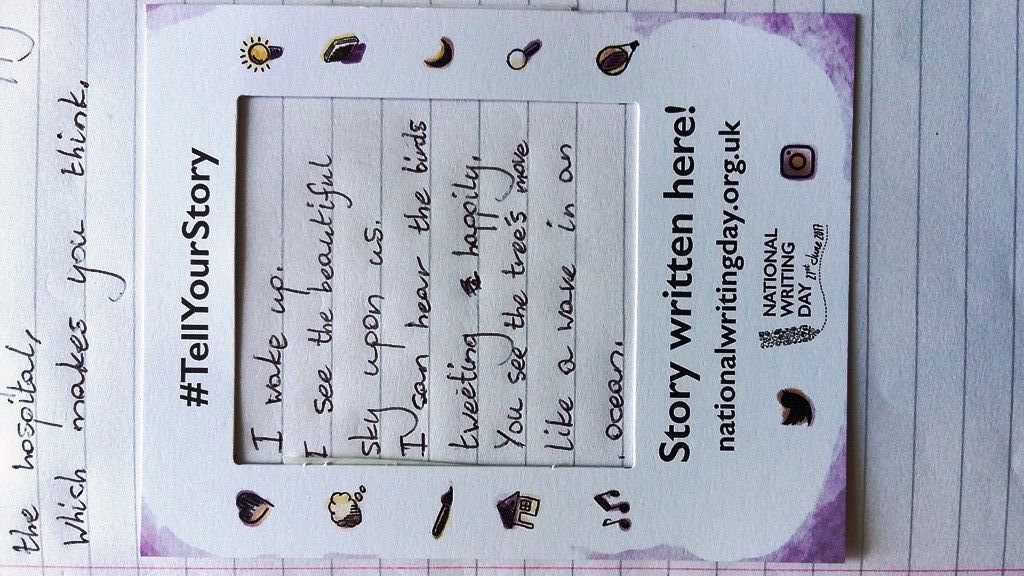 the hospital,
which makes you think.
#TellYourStory
I wake up.
I see the beautiful
sky upon us.
I can hear the birds
tweeting happily.
You see the tree's move
like a wave in an
ocean.
Story written here!
nationalwritingday.org.uk
NATIONAL
WRITING
DAY 21st June 2017